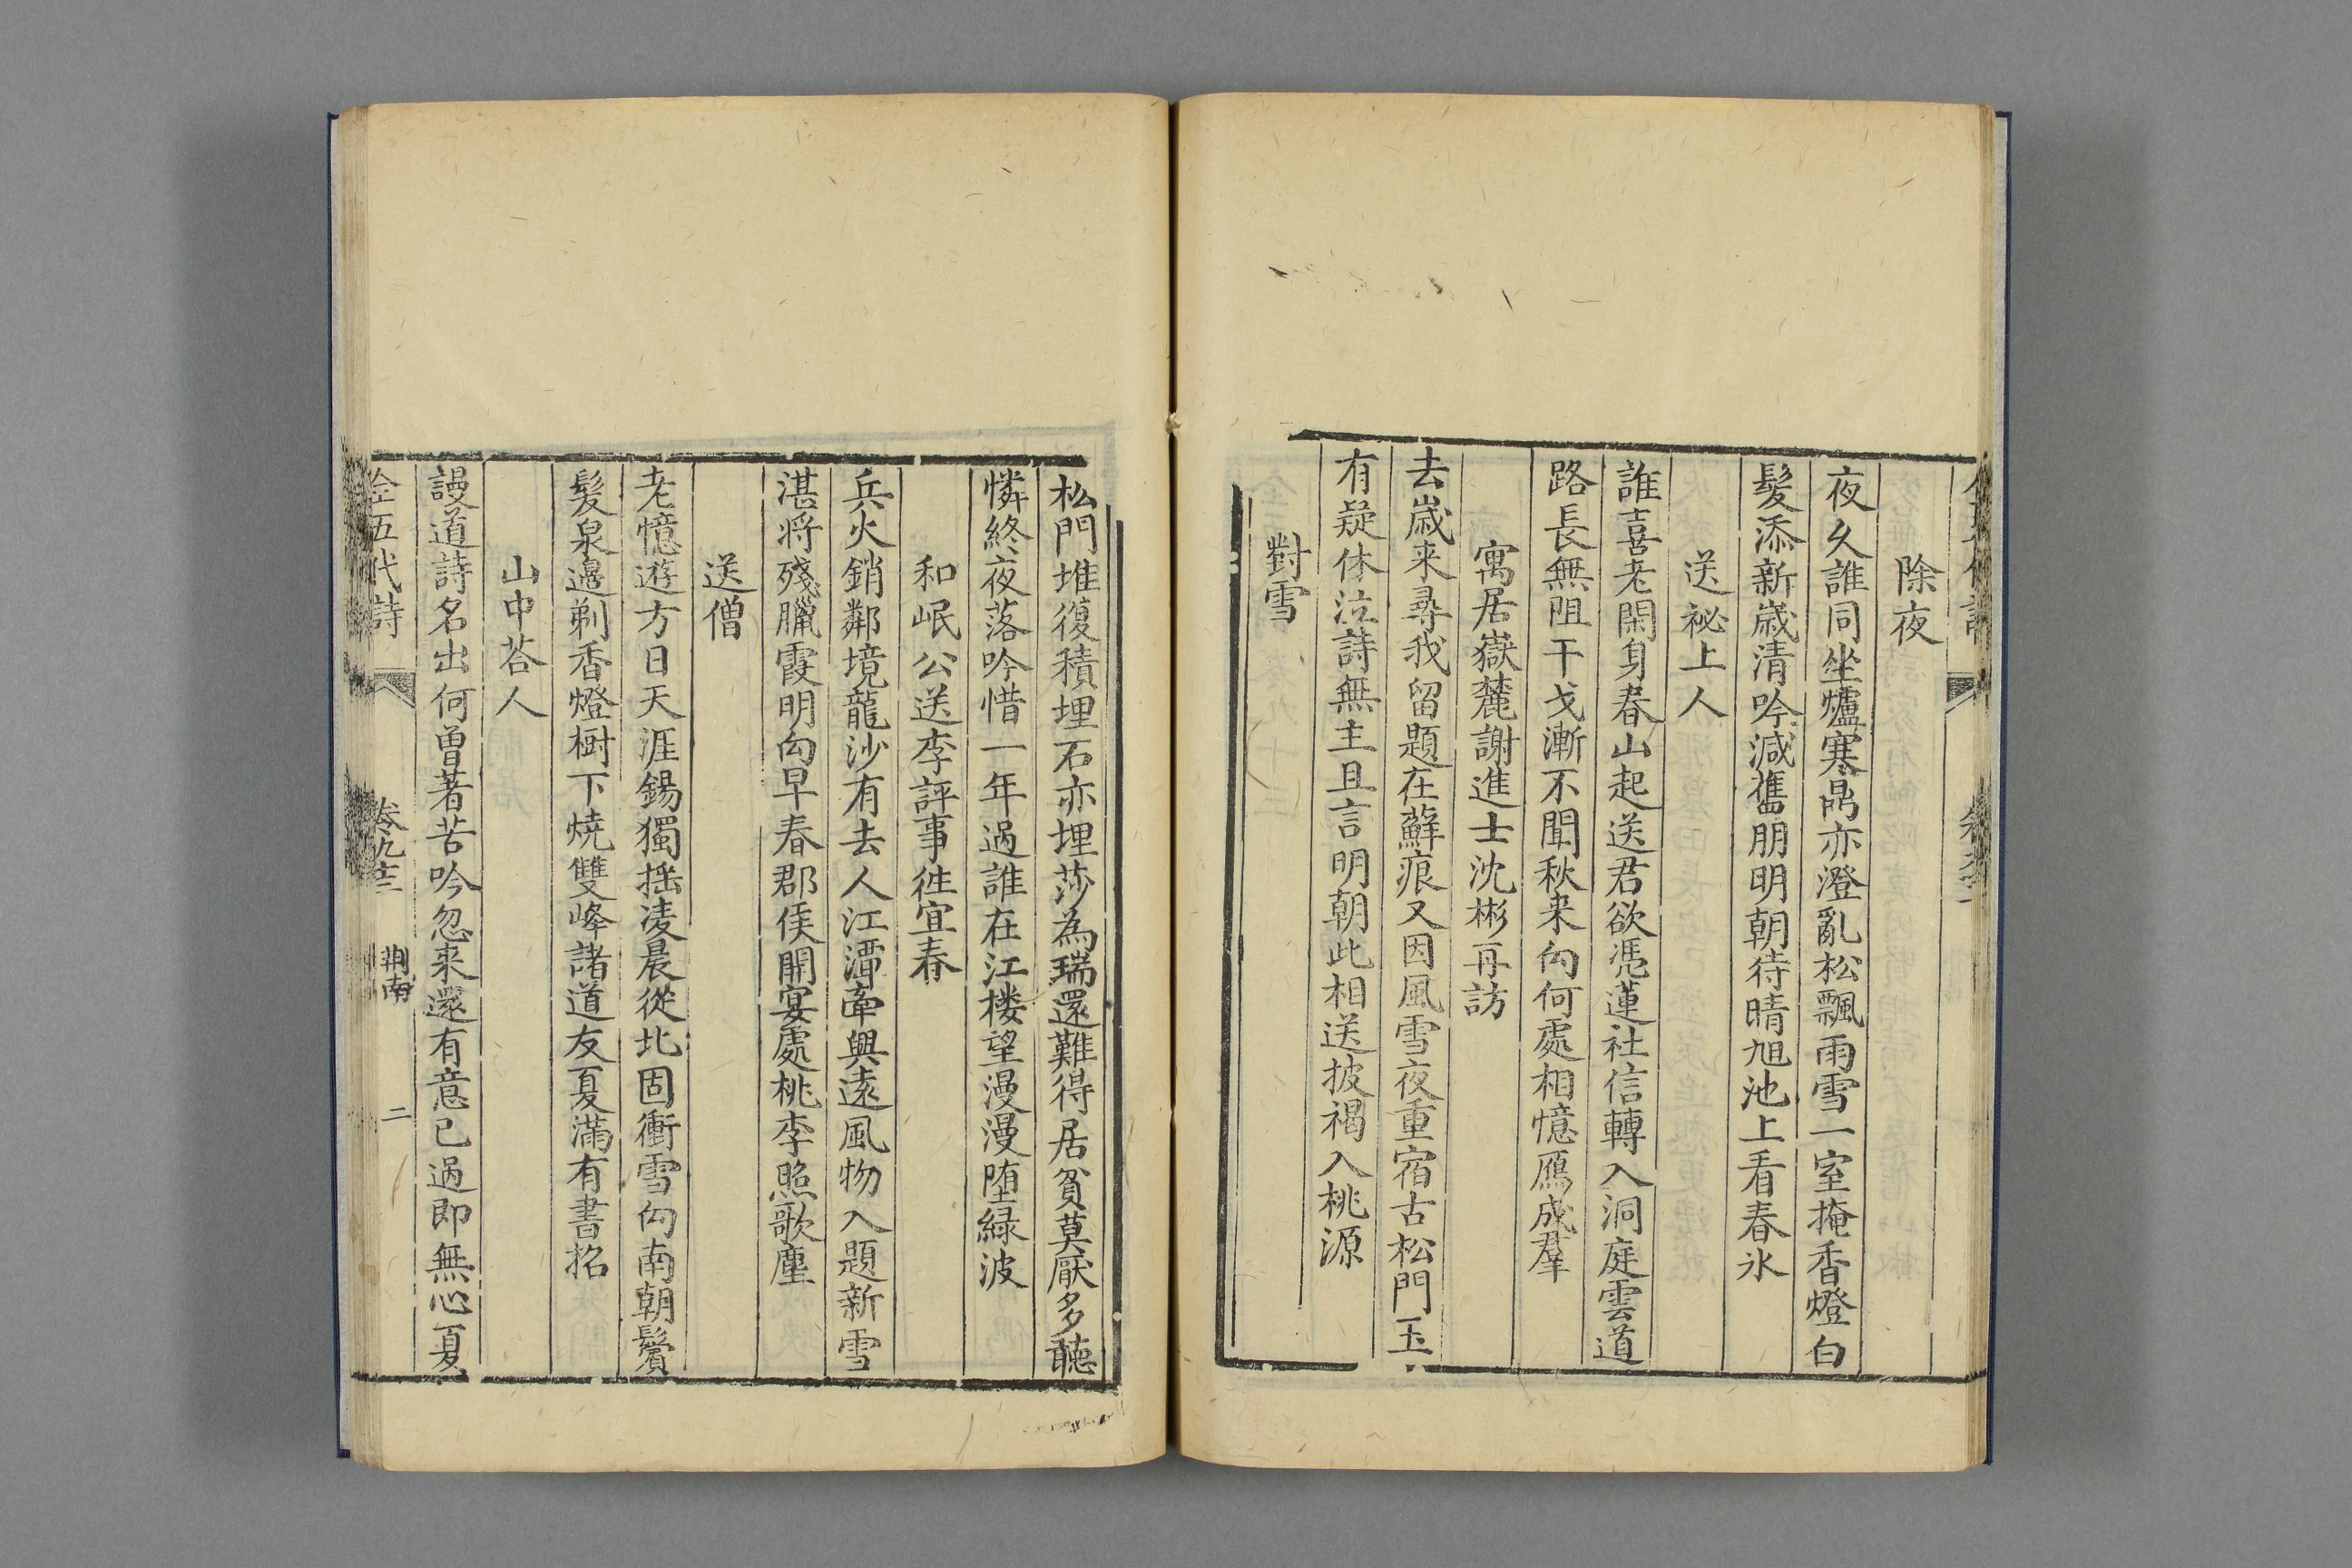 除夜
夜久誰同坐爐寒鼎亦澄亂松飄雨雪一室掩香燈白
髮添新歲清吟減舊朋明朝待晴旭池上看春氷
送祕上人
誰喜老閑身春山起送君欲憑蓮社信轉入洞庭雲道
路長無阻干戈漸不聞秋来向何處相憶鴈成羣
寓居嶽麓謝進士沈彬再訪
去歲来尋我留題在蘚痕又因風雪夜重宿古松門玉
有疑休泣詩無主且言明朝此相送披褐入桃源
對雪
松門堆復積埋石亦埋莎為瑞還難得居貧莫厭多聽
憐終夜落吟惜一年過誰在江楼望漫漫堕緑波
和岷公送李評事往宜春
兵火銷鄰境龍沙有去人江潭牽興遠風物入題新雪
湛将殘臘霞明向早春郡侯開宴處桃李照歌塵
送僧
老憶遊方日天涯錫獨摇凌晨從北固衝雪向南朝鬢
髮泉邊剃香燈樹下燒雙峰諸道友夏滿有書招
山中荅人
謾道詩名出何曽著苦吟忽来還有意已過即無心夏
全五代詩 卷九十三 荆南 二